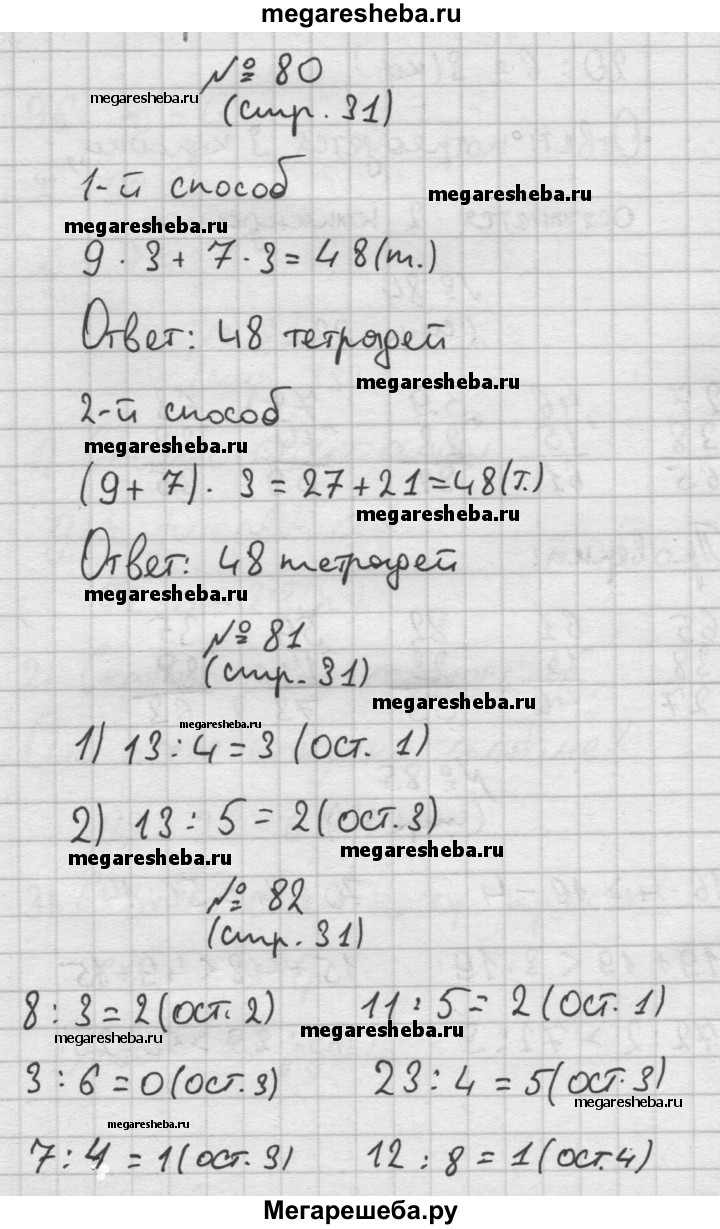 megaresheba.ru
№ 80
megaresheba.ru
(стр. 31)
1-й способ
megaresheba.ru
megaresheba.ru
9 · 3 + 7 · 3 = 48 (т.)
Ответ: 48 тетрадей
megaresheba.ru
2-й способ
megaresheba.ru
(9 + 7) · 3 = 27 + 21 = 48 (т.)
megaresheba.ru
Ответ: 48 тетрадей
megaresheba.ru
№ 81
(стр. 31)
megaresheba.ru
megaresheba.ru
1) 13 : 4 = 3 (ост. 1)
2) 13 : 5 = 2 (ост. 3)
megaresheba.ru
megaresheba.ru
№ 82
(стр. 31)
8 : 3 = 2 (ост. 2) 11 : 5 = 2 (ост. 1)
megaresheba.ru
megaresheba.ru
3 : 6 = 0 (ост. 3) 23 : 4 = 5 (ост. 3)
megaresheba.ru
megaresheba.ru
7 : 4 = 1 (ост. 3) 12 : 8 = 1 (ост. 4)
Мегарешеба.ру